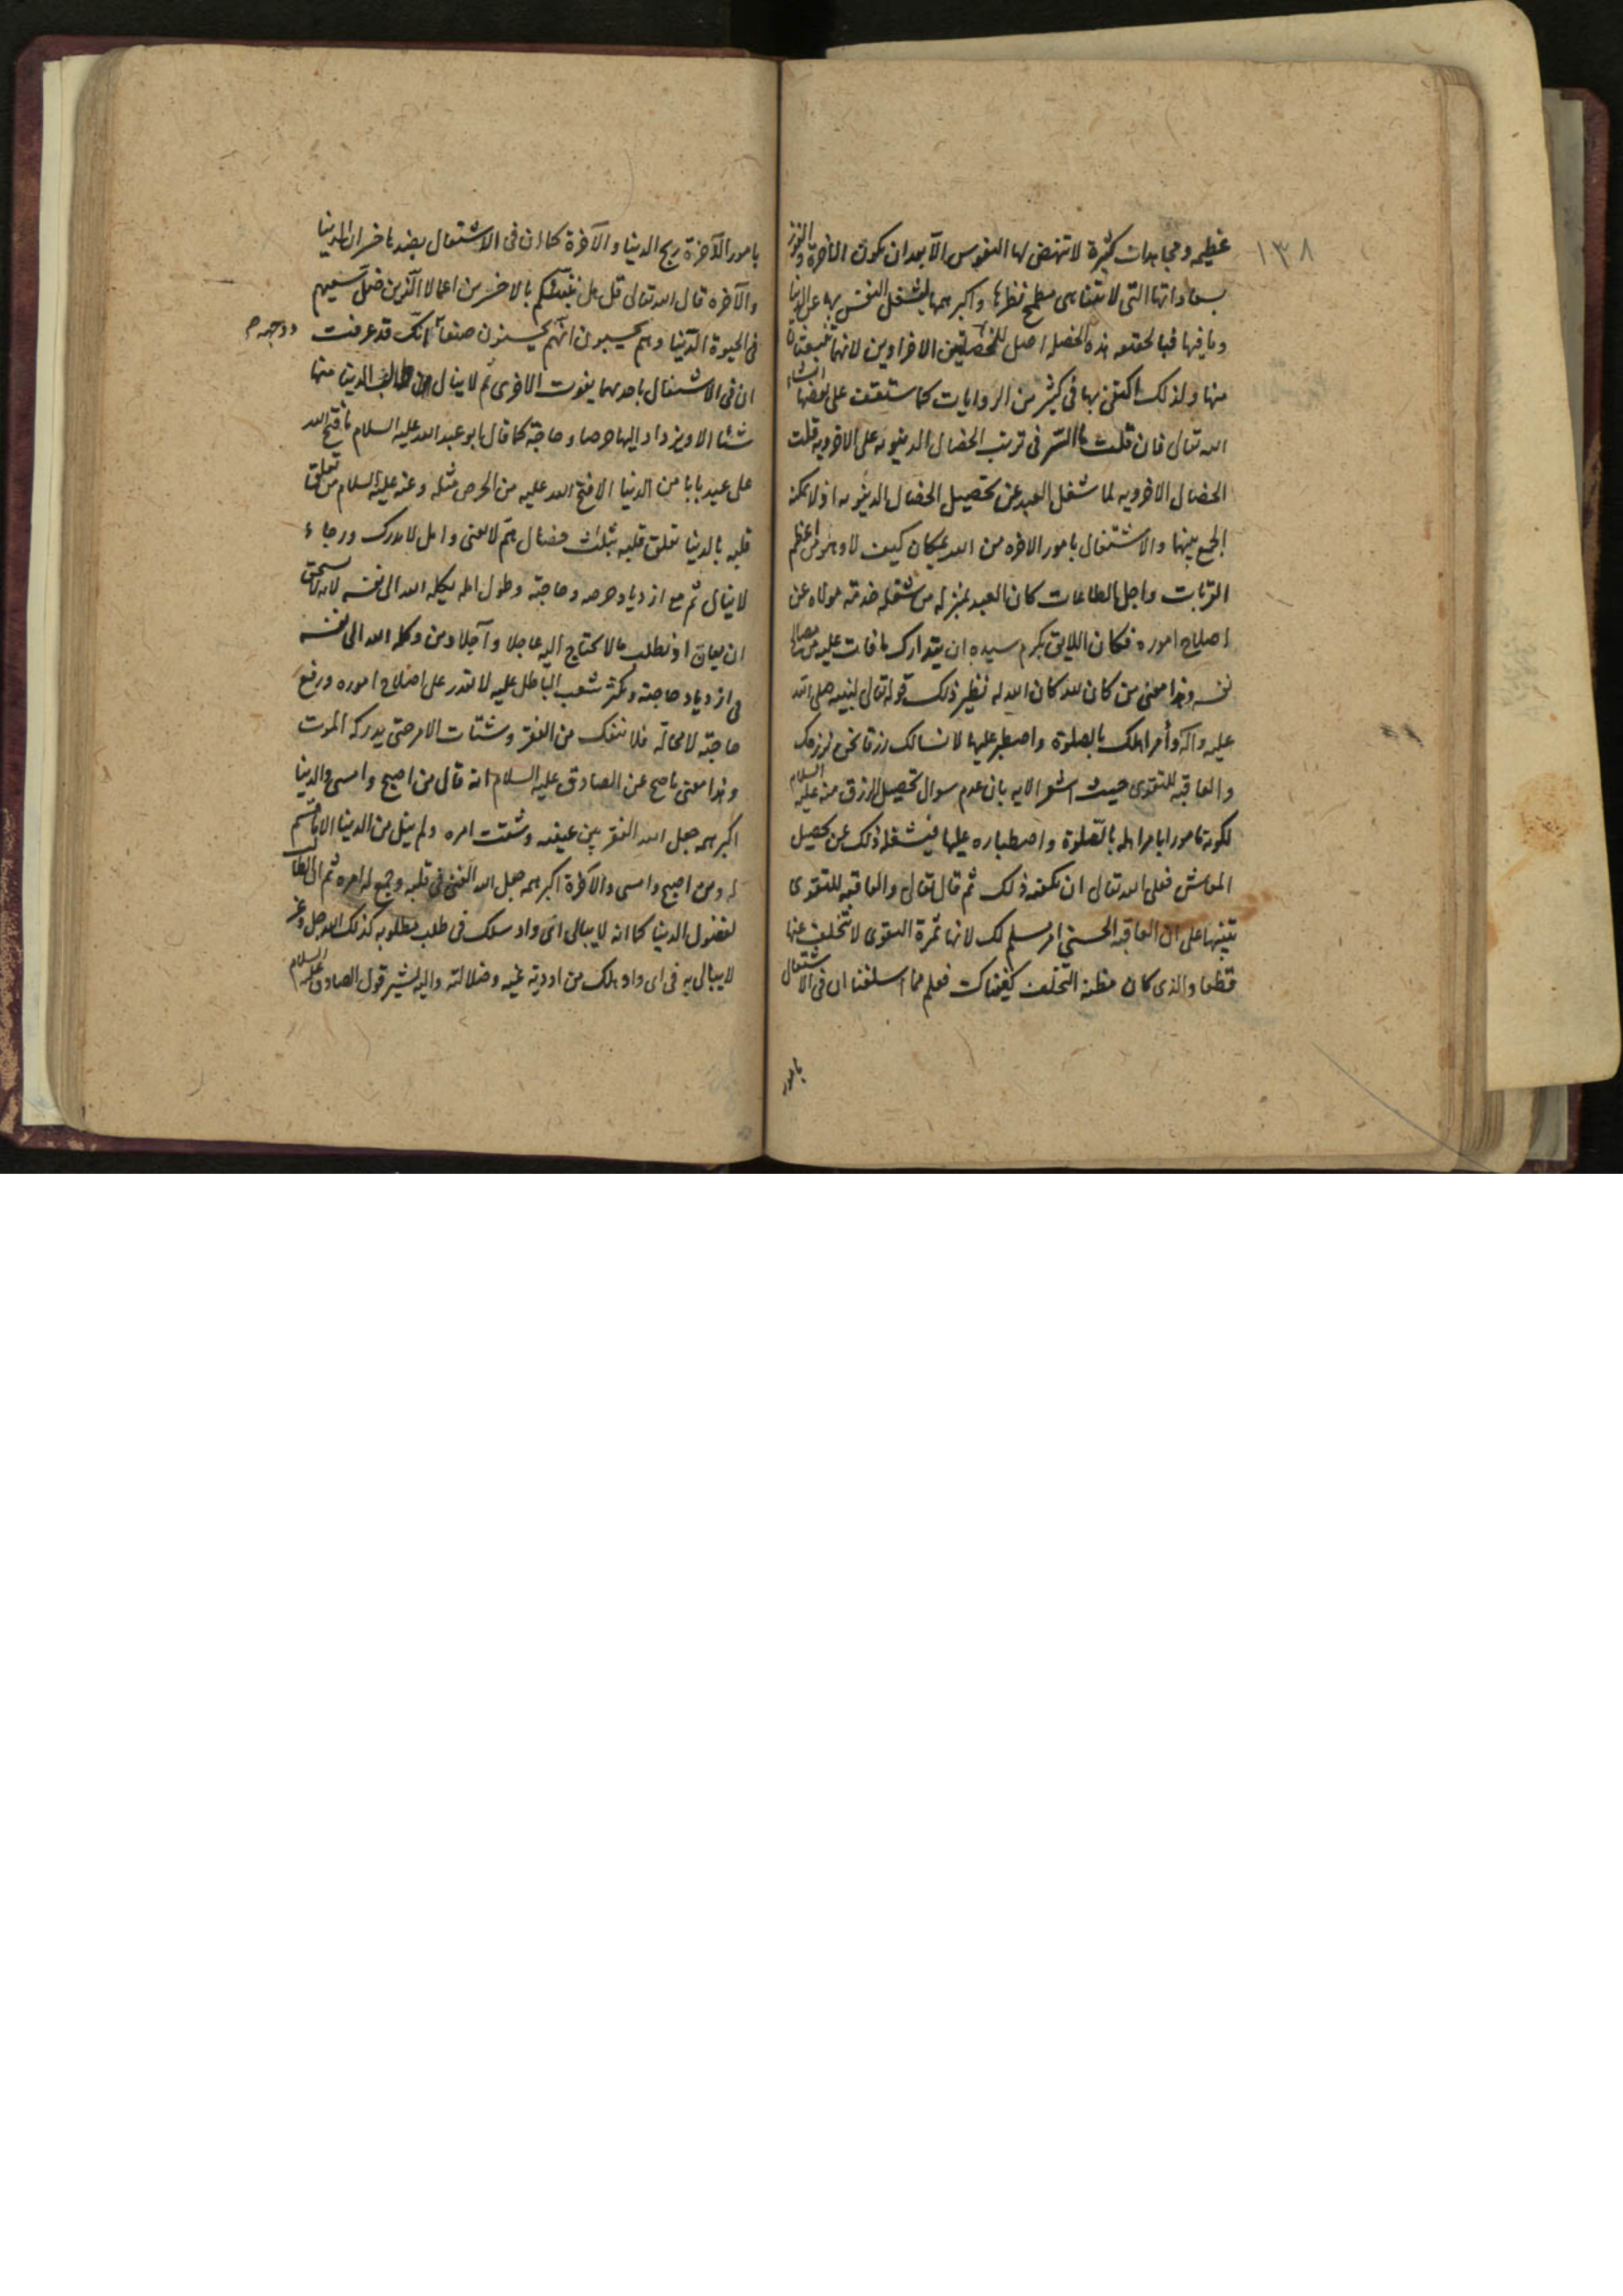 ١٣٨
عظيمه ومجاهدات كثيرة لا تنهض لها النفوس الا بعد ان يكون الاخرة والفوز
بسعاداتها التى لا تتناهى مطمح نظرها واكبر همها ليشتغل النفس بها عن الدنيا
وما فيها فبالحقيقه هذه الخصله اصل للخصلتين الاخراوين لانهما
منها ولذلك اكتفى بها فى كثير من الروايات كما ستقف على بعضها انشاء
الله تعالى فان قلت ما السّر فى ترتب الخصال الدنيويه على الاخرويه قلت
الخصال الاخرويه لما شغل العبد عن تحصيل الخصال الدنيويه اذ لا يمكنه
الجمع بينها والاشتغال بامور الاخره من الله بمكان كيف لا وهو من اعظم
القربات واجل الطاعات كان العبد بمنزله من شغله خدمة مولاه عن
اصلاح اموره فكان اللايق بكرم سيده ان يتدارك ما فات عليه من مصالح
نفسه وهذا معنى من كان لله كان الله له نظير ذلك قوله تعالى لنبيه صلى الله
عليه وآله وأمر اهلك بالصلوة واصطبر عليها لا نسالك رزقا نحن نرزقك
والعاقبه للتقوى حيث اشعر الايه بان عدم سوال تحصيل الرزق منه عليه السلام
لكونه مامورا بامر اهله بالصّلوة واصطباره عليها فيشغله ذلك عن تحصيل
المعاش فعلى الله تعالى ان يكفيه ذلك ثم قال تعالى والعاقبه للتقوى
تنبيها على ان العاقبه الحسنى امر مسلم لك لانها ثمرة التقوى لا تتخلف عنها
قطعا والذى كان مظنه التخلف كفيناك فعلم مما اسلفنا ان فى الاشتغال
بامور
بامور الآخرة ربح الدنيا والآخرة كما ان فى الاشتغال بضدها خسران الدنيا
والآخره قال الله تعالى قل هل ننبّئكم بالاخسرين اعمالا الّذين ضلّ سعيهم
فى الحيوة الدّنيا وهم يحسبون انّهم يحسنون صنعاً لانّك قد عرفت
ان فى الاشتغال باحدهما يفوت الاخرى ثم لا ينال طالب الدنيا منها
شئا الا ويزداد اليها حرصا وحاجة كما قال ابو عبد الله عليه السلام ما فتح الله
على عبد بابا من الدنيا الا فتح الله عليه من الحرص مثله وعنه عليه السلام من تعلق
قلبه بالدنيا تعلق قلبه بثلث خصال همّ لا يفنى وامل لا يدرك ورجاء
لا ينال ثم مع ازدياد حرصه وحاجته وطول امله يكله الله الى نفسه لانه لا يستحق
ان يعان اذ يطلب ما لا يحتاج اليه عاجلا وآجلا ومن وكله الله الى نفسه
فى ازدياد حاجته وتكثر شعب الباطل عليه لا يقدر على اصلاح اموره ورفع
حاجته لا محالة فلا ينفك من الفقر وشتات الامر حتى يدركه الموت
وهذا معنى ما صح عن الصادق عليه السلام انه قال من اصبح وامسى والدنيا
اكبر همه جعل الله الفقر بين عينيه وشتت امره ولم ينل من الدنيا الا ما قسم
له ومن اصبح وامسى والآخرة اكبر همه جعل الله الغنى فى قلبه وجمع له امره ثم ان الطالب
لفضول الدنيا كما انه لا يبالى اى واد سلك فى طلب مطلوبه كذلك الله جل وعز
لا يبالى به فى اى واد هلك من اودية غيه وضلالته واليه يشير قول الصادق عليه السلام